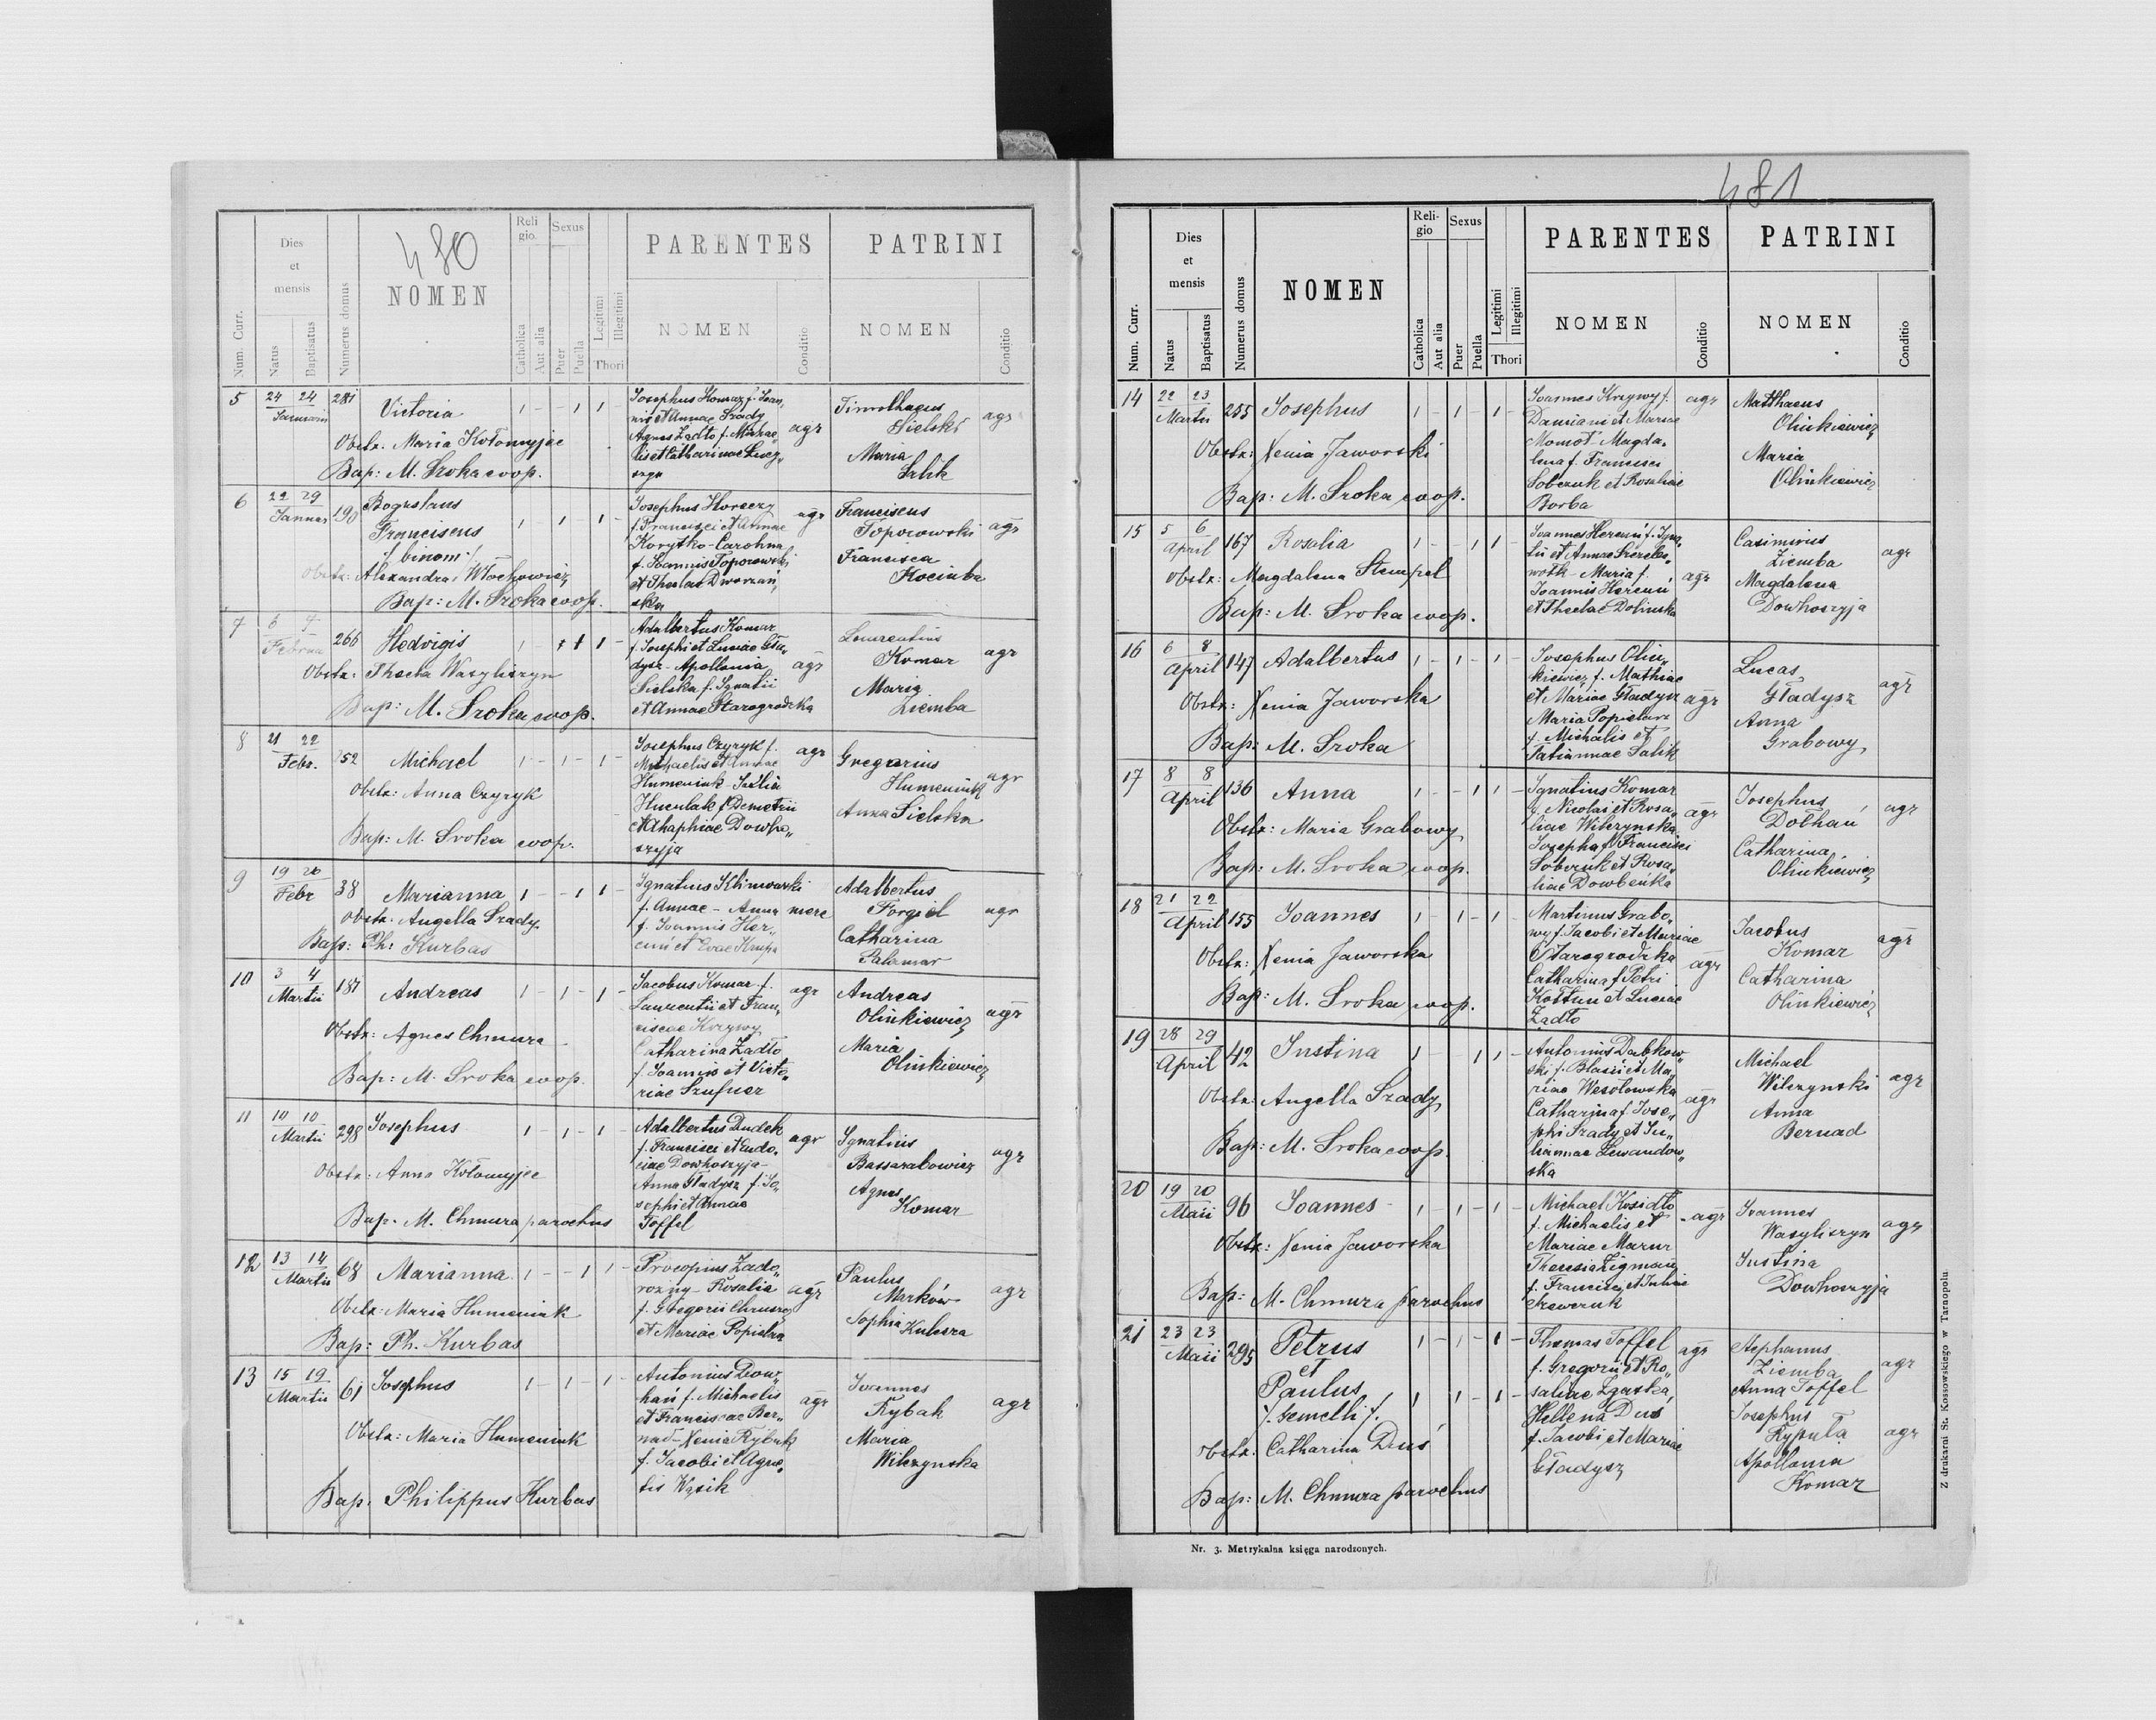 480
Num. Curr.
Dies et mensis
Natus
Baptisatus
Numerus domus
NOMEN
Religio.
Catholica
Aut alia
Sexus
Puer
Puella
Legitimi
Illegitimi
Thori
PARENTES
NOMEN
Conditio
PATRINI
NOMEN
Conditio
5 24 24 Januarii 281 Victoria 1 - - 1 1 -
Obstx. Maria Kołomyjec
Bap: M. Sroka coop.
Josephus Komar f. Joan„
nis et Annae Szady
Agnes Żądło f. Michae„
lis et Catharinae
agr
Timotheus
Sielski
Maria
Salik
agr
6 22 29 Januar 190 Boguslaus
Franciscus
/ binom: /
Obstx: Alexandra Włochowicz
Bap: M. Sroka coop.
1 - 1 - 1 -
Josephus
f. Francisci et Annae
Korytko - Carolina
f. Joannis Toporowski
et Theclae Dworzań„
ska
agr
Franciscus
Toporowski
Francisca
Kociuba
agr
7 6 7 Februa 266 Hedvigis
Obstx: Thecla Wasyliszyn
Bap: M. Sroka coop.
Adalbertus Komar
f. Josephi et Luciae Gła„
dysz - Apollonia
Sielska f. Ignatii
et Annae Starogrodzka
agr
Laurentius
Komar
Maria
Ziemba
agr
8 21 22 Febr. 252 Michael 1 - 1 - 1 -
Obstx: Anna Czyryk
Bap: M. Sroka coop.
Josephus Czyryk f.
Michaelis et Annae
Humeniuk - Julia
Huculak f. Demetrii
et Ahaphiae Dowho„
szyja
agr
Gregorius
Humeniuk
Anna Sielska
agr
9 19 20 Febr 38 Marianna 1 - - 1 1 -
Obstx. Angella Szady
Bap: Ph: Kurbas
Ignatius Klimowski
f. Annae - Anna
f. Joannis Her„
cuń et Evae Krupa
merc
Adalbertus
Forgiel
Catharina
Salamar
agr
10 3 4 Martii 187 Andreas 1 - 1 - 1 -
Obstx: Agnes Chmura
Bap: M. Sroka coop.
Jacobus Komar f.
Laurentii et Fran„
ciscae Krzywy
Catharina Żądło
f. Joannis et Victo„
riae Szufner
agr
Andreas
Olinkiewicz
Maria
Olinkiewicz
agr
11 10 10 Martii 298 Josephus 1 - 1 - 1 -
Obstx: Anna Kołomyjec
Bap. M. Chmura parochus
Adalbertus Dudek
f. Francisci et Eudo„
ciae Dowhoszyja -
Anna Gladysz f. Jo„
sephi et Annae
Toffel
agr
Ignatius
Bassarabowicz
Agnes
Komar
agr
12 13 14 Martii 68 Marianna 1 - - 1 1 -
Obstx: Maria Humeniuk
Bap: Ph. Kurbas
Procopius Zado„
rożny - Rosalia
f. Gregorii Chruszcz
et Mariae Popielna
agr
Paulus
Marków
Sophia Kulesza
agr
13 15 19 Martii 61 Josephus 1 - 1 - 1 -
Obstx: Maria Humeniuk
Bap. Philippus Kurbas
Antonius Dow„
hań f. Michaelis
et Franciscae Ber„
nad - Xenia Rybak
f. Jacobi et Agne„
tis Wąsik
agr
Joannes
Rybak
Maria
Wilczynska
agr
481
Num. Curr.
Dies et mensis
Natus
Baptisatus
Numerus domus
NOMEN
Religio
Catholica
Aut alia
Sexus
Puer
Puella
Legitimi
Illegitimi
Thori
PARENTES
NOMEN
Conditio
PATRINI
NOMEN
Conditio
14 22 23 Martii 255 Josephus 1 1 - 1 -
Obstx: Xenia Jaworski
Bap: M. Sroka coop.
Joannes Krzywy f.
Damiani et Mariae
Momot - Magda„
lena f. Francisci
Sobczuk et Rosaliae
Borba
agr
Matthaeus
Olinkiewicz
Maria
Olinkiewicz
15 5 6 April 167 Rosalia 1 - - 1 1 -
Obstx: Magdalena Stempel
Bap: M. Sroka coop.
Joannes Hercuń f. Igna„
tii et Annae
Maria f.
Joannis Hercuń
et Theclae Dolinska
agr
Casimirus
Ziemba
Magdalena
Dowhoszyja
agr
16 6 8 April 147 Adalbertus 1 - 1 - 1 -
Obstx: Xenia Jaworska
Bap: M. Sroka
Josephus Olin„
kiewicz f. Mathiae
et Mariae Gładysz
Maria Popielarz
f. Michalis et
Tatiannae Salik
agr
Lucas
Gładysz
Anna
Grabowy
agr
17 8 8 April 136 Anna 1 - - 1 1 -
Obstx: Maria Grabowy
Bap: M. Sroka coop.
Ignatius Komar
f. Nicolai et Rosa„
liae Wilczynska
Josepha f. Francisci
Sobczuk et Rosa„
liae Dowbenka
agr
Josephus
Dołhań
Catharina
Olinkiewicz
agr
18 21 22 April 155 Joannes 1 - 1 - 1 -
Obstx: Xenia Jaworska
Bap: M. Sroka coop.
Martinus Grabo„
wy f. Jacobi et Mariae
Starogrodzka
Catharina f. Petri
Kołtun et Luciae
Żądło
agr
Jacobus
Komar
Catharina
Olinkiewicz
agr
19 28 29 April 42 Justina 1 - 1 1 -
Obstx: Angella Szady
Bap: M. Sroka coop.
Antonius Dabkow„
ski f. Blasii et Ma„
riae Wesołowska
Catharina f. Jose„
phi Szady et Ju„
liannae Lewandow„
ska
agr
Michael
Wilczynski
Anna
Bernad
agr
20 19 20 Maii 96 Joannes 1 - 1 - 1 -
Obstx: Xenia Jaworska
Bap: M. Chmura parochus
Michael Kosidło
f. Michaelis et
Mariae Mazur
Theresia Zigman
f. Francisci et Juliae
Szewczuk
agr
Joannes
Wasyliszyn
Justina
Dowhoszyja
agr
21 23 23 Maii 295 Petrus 1 - 1 - 1 -
et
Paulus
/. Gemelli /. 1 1 - 1 -
Obstx: Catharina Duś
Bap: M. Chmura parochus
Thomas Toffel
f. Gregorii et Ro„
saliae Zgurska,
Hellena Duś
f. Jacobi et Mariae
Gładysz
agr
Stephanus
Ziemba
Anna Toffel
agr
Josephus
Rypuła
Apollonia
Komar
agr
Nr. 3. Metrykalna księga narodzonych.
Z drukarni St. Kossowskiego w Tarnopolu